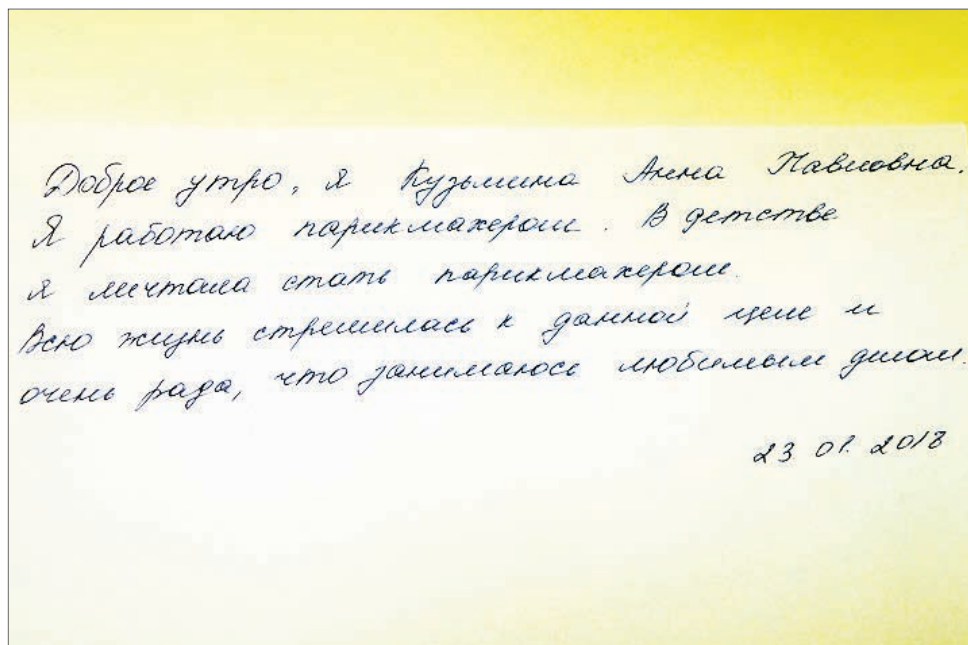 Доброе утро, я Кузьмина Анна Павловна.
Я работаю парикмахером. В детстве
я мечтала стать парикмахером.
Всю жизнь стремилась к данной цели и
очень рада, что занимаюсь любимым делом.
23 01. 2018